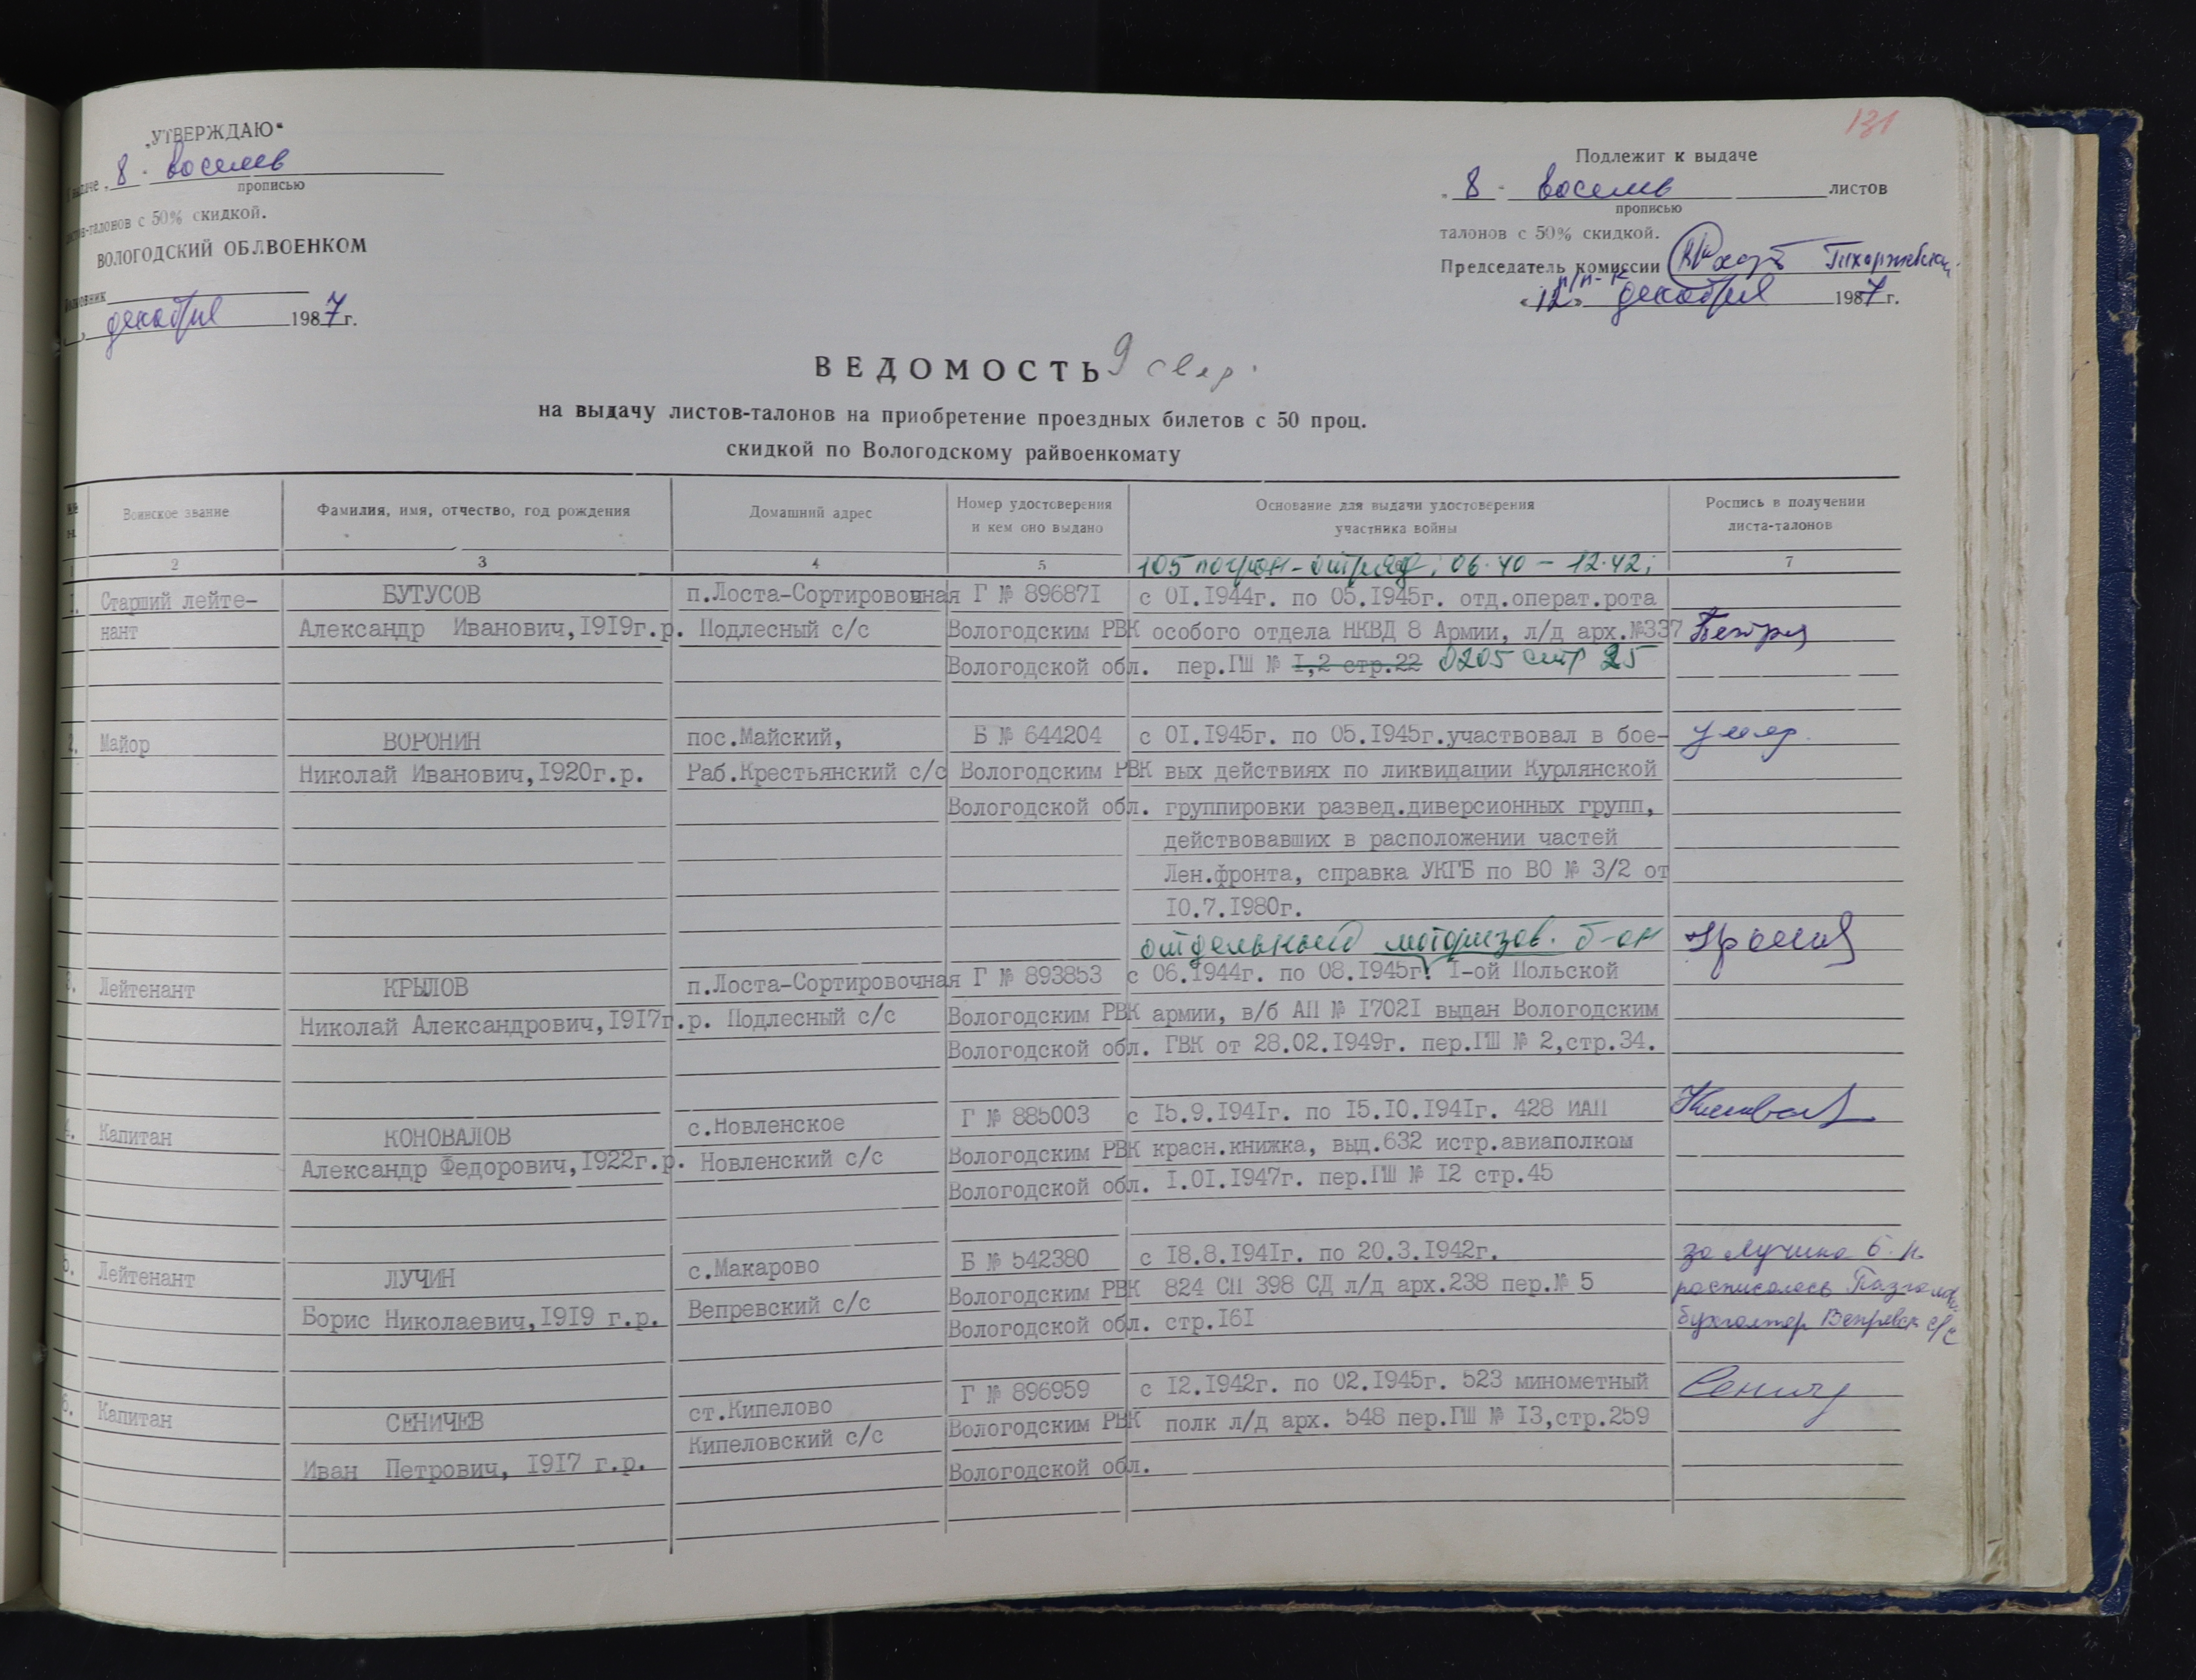 131
„УТВЕРЖДАЮ“
выдаче „8“ восемь
прописью
талонов с 50% скидкой.
ВОЛОГОДСКИЙ ОБЛВОЕНКОМ
декабря 1987 г.
Подлежит к выдаче
„8“ восемь листов
прописью
талонов с 50% скидкой.
Председатель комиссии
п/п-к
«12» декабря 1987 г.
ВЕДОМОСТЬ 9
на выдачу листов-талонов на приобретение проездных билетов с 50 проц.
скидкой по Вологодскому райвоенкомату
Воинское звание
Фамилия, имя, отчество, год рождения
Домашний адрес
Номер удостоверения
и кем оно выдано
Основание для выдачи удостоверения
участника войны
Роспись в получении
листа-талонов
2 3 4 5 7
105 погран-отряд; 06.40 - 12.42;
1. Старший лейте- БУТУСОВ п.Лоста-Сортировочная Г № 896871 с 01.1944г. по 05.1945г. отд.операт.рота
нант Александр Иванович,1919г.р. Подлесный с/с Вологодским РВК особого отдела НКВД 8 Армии, л/д арх.№337
Вологодской обл. пер.ГШ № 1,2 стр.22 0205 стр 25
2. Майор ВОРОНИН пос.Майский, Б № 644204 с 01.1945г. по 05.1945г.участвовал в бое- умер.
Николай Иванович,1920г.р. Раб.Крестьянский с/с Вологодским РВК вых действиях по ликвидации Курлянской
Вологодской обл. группировки развед.диверсионных групп,
действовавших в расположении частей
Лен.фронта, справка УКГБ по ВО № 3/2 от
10.7.1980г.
отдельный моторизов. б-он
3. Лейтенант КРЫЛОВ п.Лоста-Сортировочная Г № 893853 с 06.1944г. по 08.1945г. 1-ой Польской
Николай Александрович,1917г.р. Подлесный с/с Вологодским РВК армии, в/б АП № 17021 выдан Вологодским
Вологодской обл. ГВК от 28.02.1949г. пер.ГШ № 2,стр.34.
4. Капитан КОНОВАЛОВ с.Новленское Г № 885003 с 15.9.1941г. по 15.10.1941г. 428 ИАП
Александр Федорович,1922г.р. Новленский с/с Вологодским РВК красн.книжка, выд.632 истр.авиаполком
Вологодской обл. 1.01.1947г. пер.ГШ № 12 стр.45
5. Лейтенант ЛУЧИН с.Макарово Б № 542380 с 18.8.1941г. по 20.3.1942г. за Лучина Б.Н.
Борис Николаевич,1919 г.р. Вепревский с/с Вологодским РВК 824 СП 398 СД л/д арх.238 пер.№ 5 расписалась
Вологодской обл. стр.161 бухгалтер Вепревск с/с
6. Капитан СЕНИЧЕВ ст.Кипелово Г № 896959 с 12.1942г. по 02.1945г. 523 минометный
Иван Петрович, 1917 г.р. Кипеловский с/с Вологодским РВК полк л/д арх. 548 пер.ГШ № 13,стр.259
Вологодской обл.